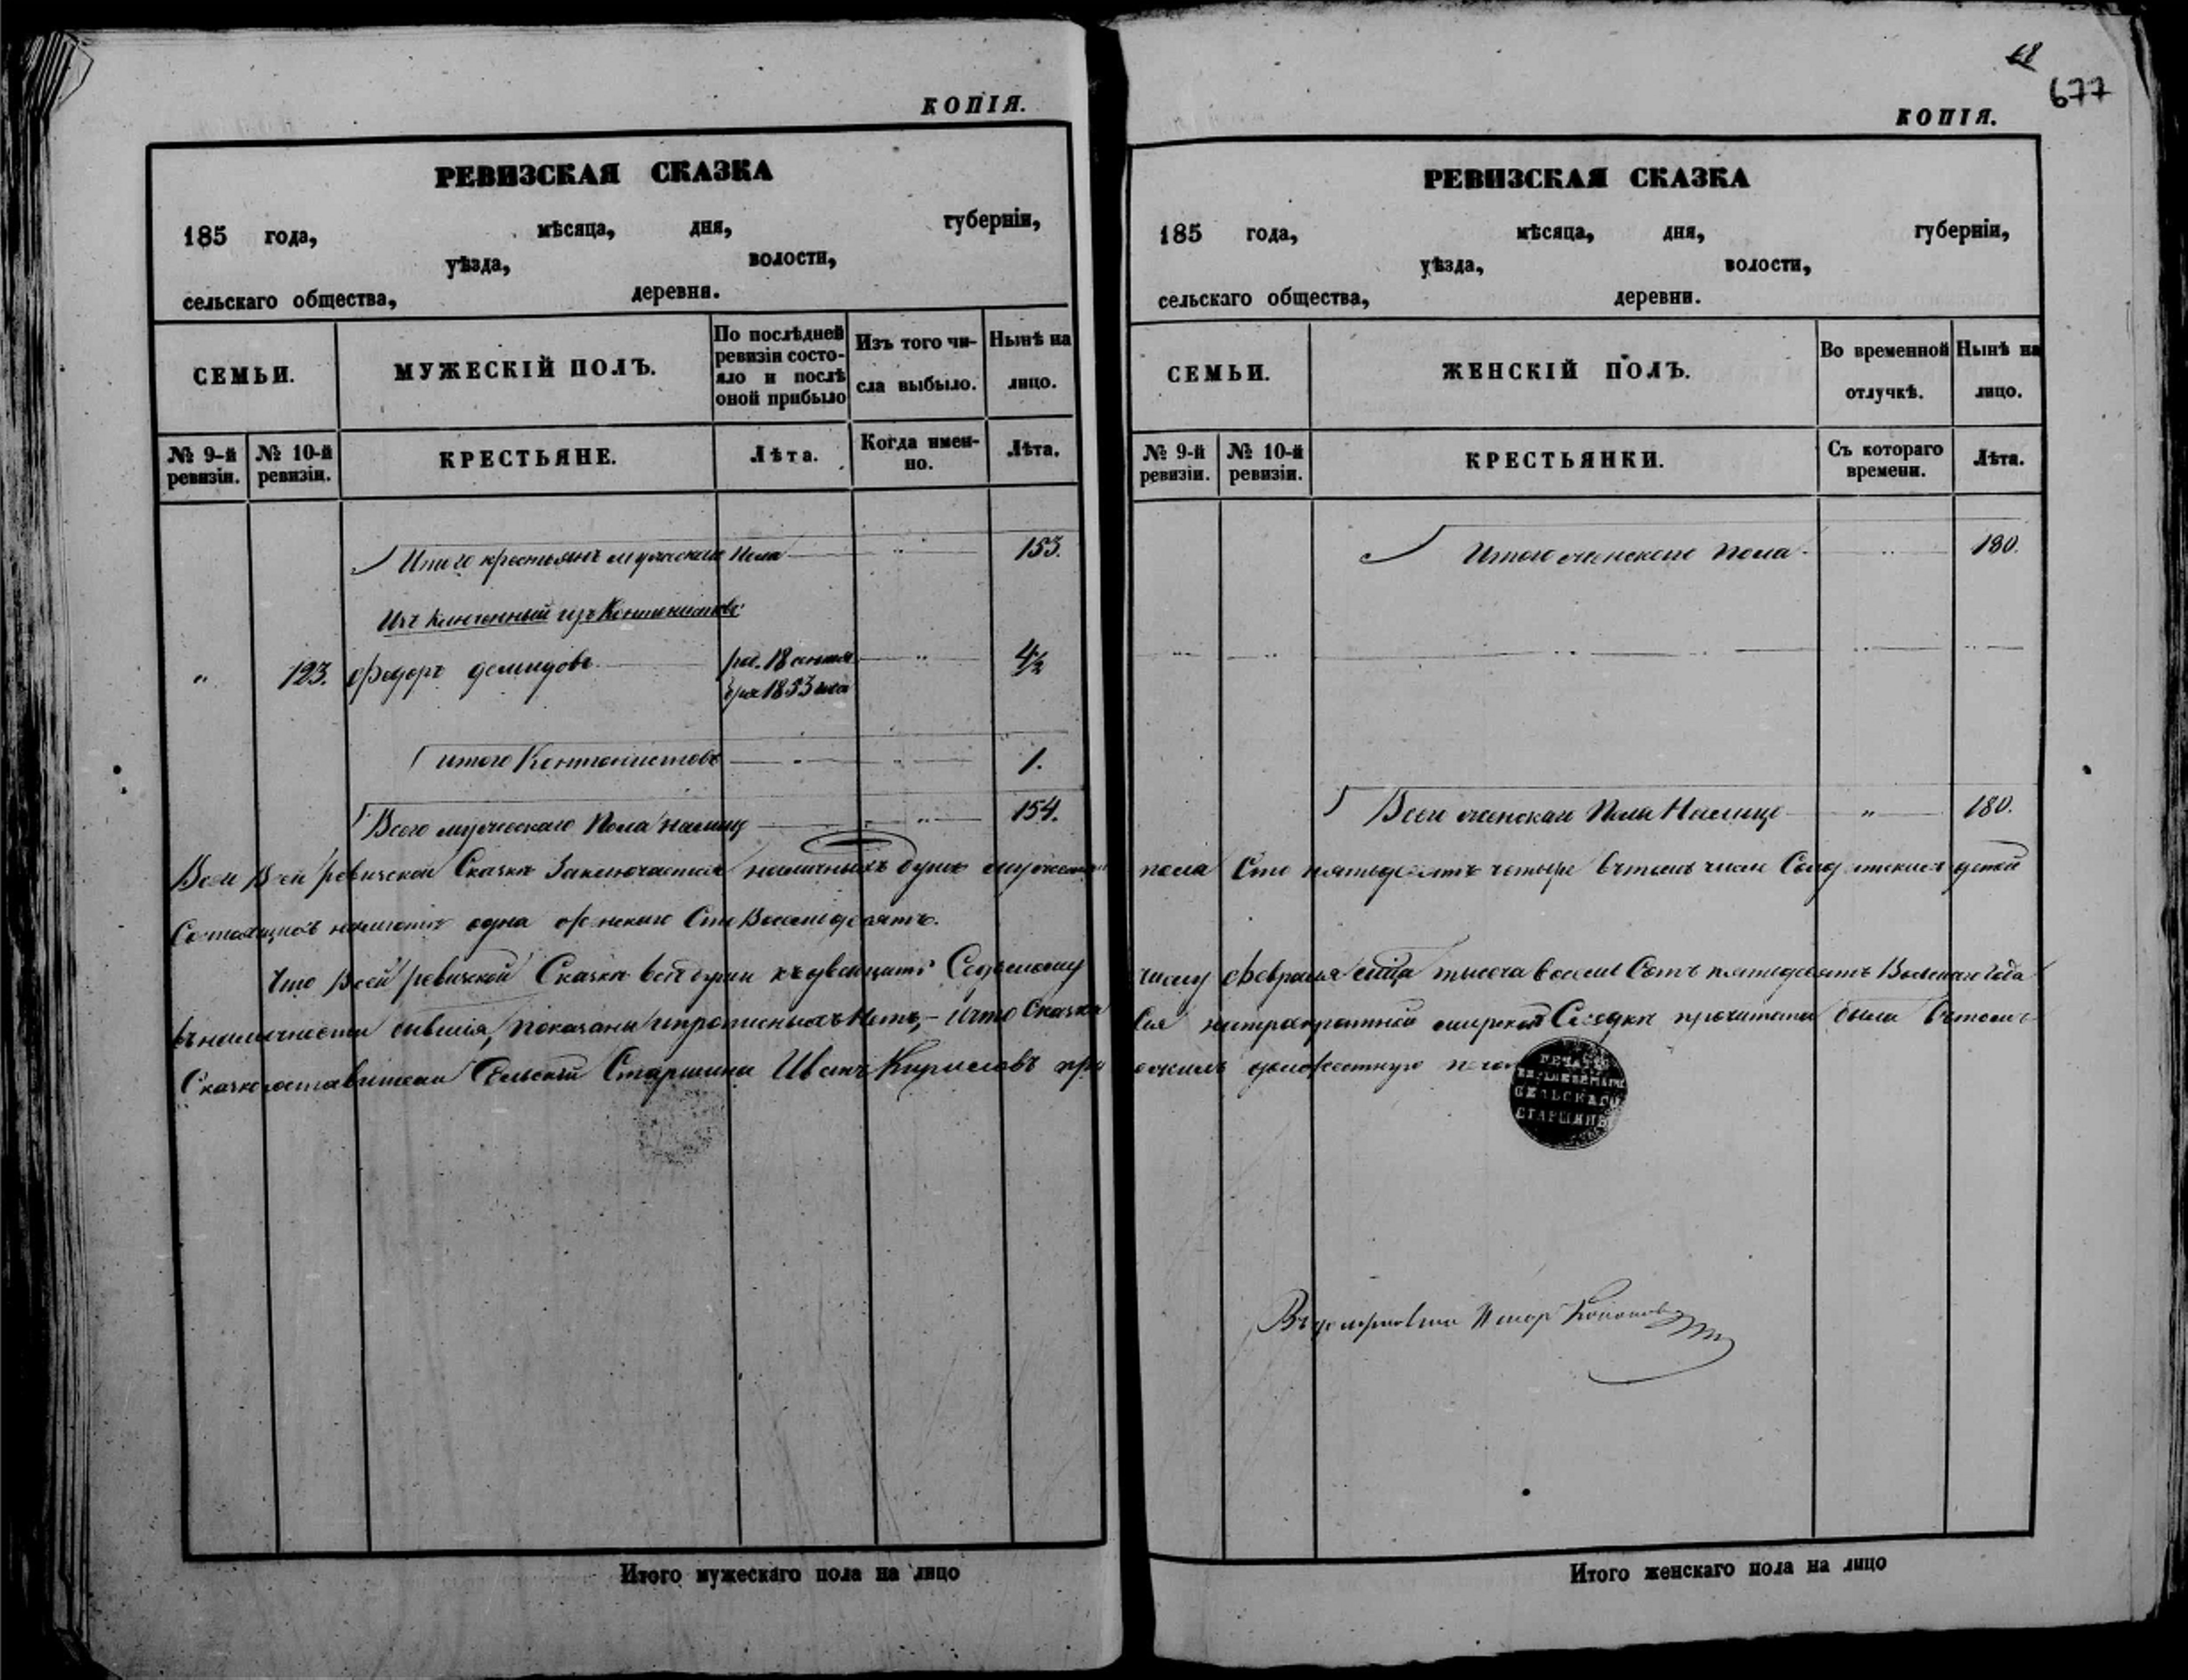 КОПІЯ.
РЕВИЗСКАЯ СКАЗКА
185 года, мѣсяца, дня, губерніи,
уѣзда, волости,
сельскаго общества, деревни.
СЕМЬИ.
МУЖЕСКІЙ ПОЛЪ.
По послѣдней
ревизіи состо-
яло и послѣ
оной прибыло
Изъ того чи-
сла выбыло.
Нынѣ на
лицо.
№ 9-й
ревизіи.
№ 10-й
ревизіи.
КРЕСТЬЯНЕ.
Лѣта.
Когда имен-
но.
Лѣта.
Итого крестьянъ мужеска пола 153.
Изключенный изъ Кантонистовъ
" 123. Федоръ Демидовъ род. 18 сентя 4½
бря 1853 года
итого Кантонистовъ 1.
Всего мужескаго Пола налицо 154.
68
677
КОПІЯ.
РЕВИЗСКАЯ СКАЗКА
185 года, мѣсяца, дня, губерніи,
уѣзда, волости,
сельскаго общества, деревни.
СЕМЬИ.
ЖЕНСКІЙ ПОЛЪ.
Во временной
отлучкѣ.
Нынѣ на
лицо.
№ 9-й
ревизіи.
№ 10-й
ревизіи.
КРЕСТЬЯНКИ.
Съ котораго
времени.
Лѣта.
Итого женскаго пола 180.
Всего женскаго Пола Налицо " 180.
Всей ревизской Сказкѣ Заключается наличныхъ душъ мужеска пола Сто пятьдесятъ четыре вътомъ числе Солдатскихъ детей
Состоящихъ одна женскаго Сто Восемьдесятъ.
Что Всей ревизской Сказкѣ все души къ двадцать Седьмому числу февраля м͠ца тысяча восемь Сотъ пятьдесятъ Восьмаго Года
въ наличности бывшія, показаны и прописныхъ Нетъ,- и что Сказка Сія на мирской Сходкѣ прочитана была вътомъ
Сказкосоставители Сельскій Старшина Иванъ Кириловъ приложилъ должностную печать
ПЕЧАТЬ
СЕЛЬСКАГО
СТАРШИНЫ
Итого мужескаго пола на лицо
Итого женскаго пола на лицо